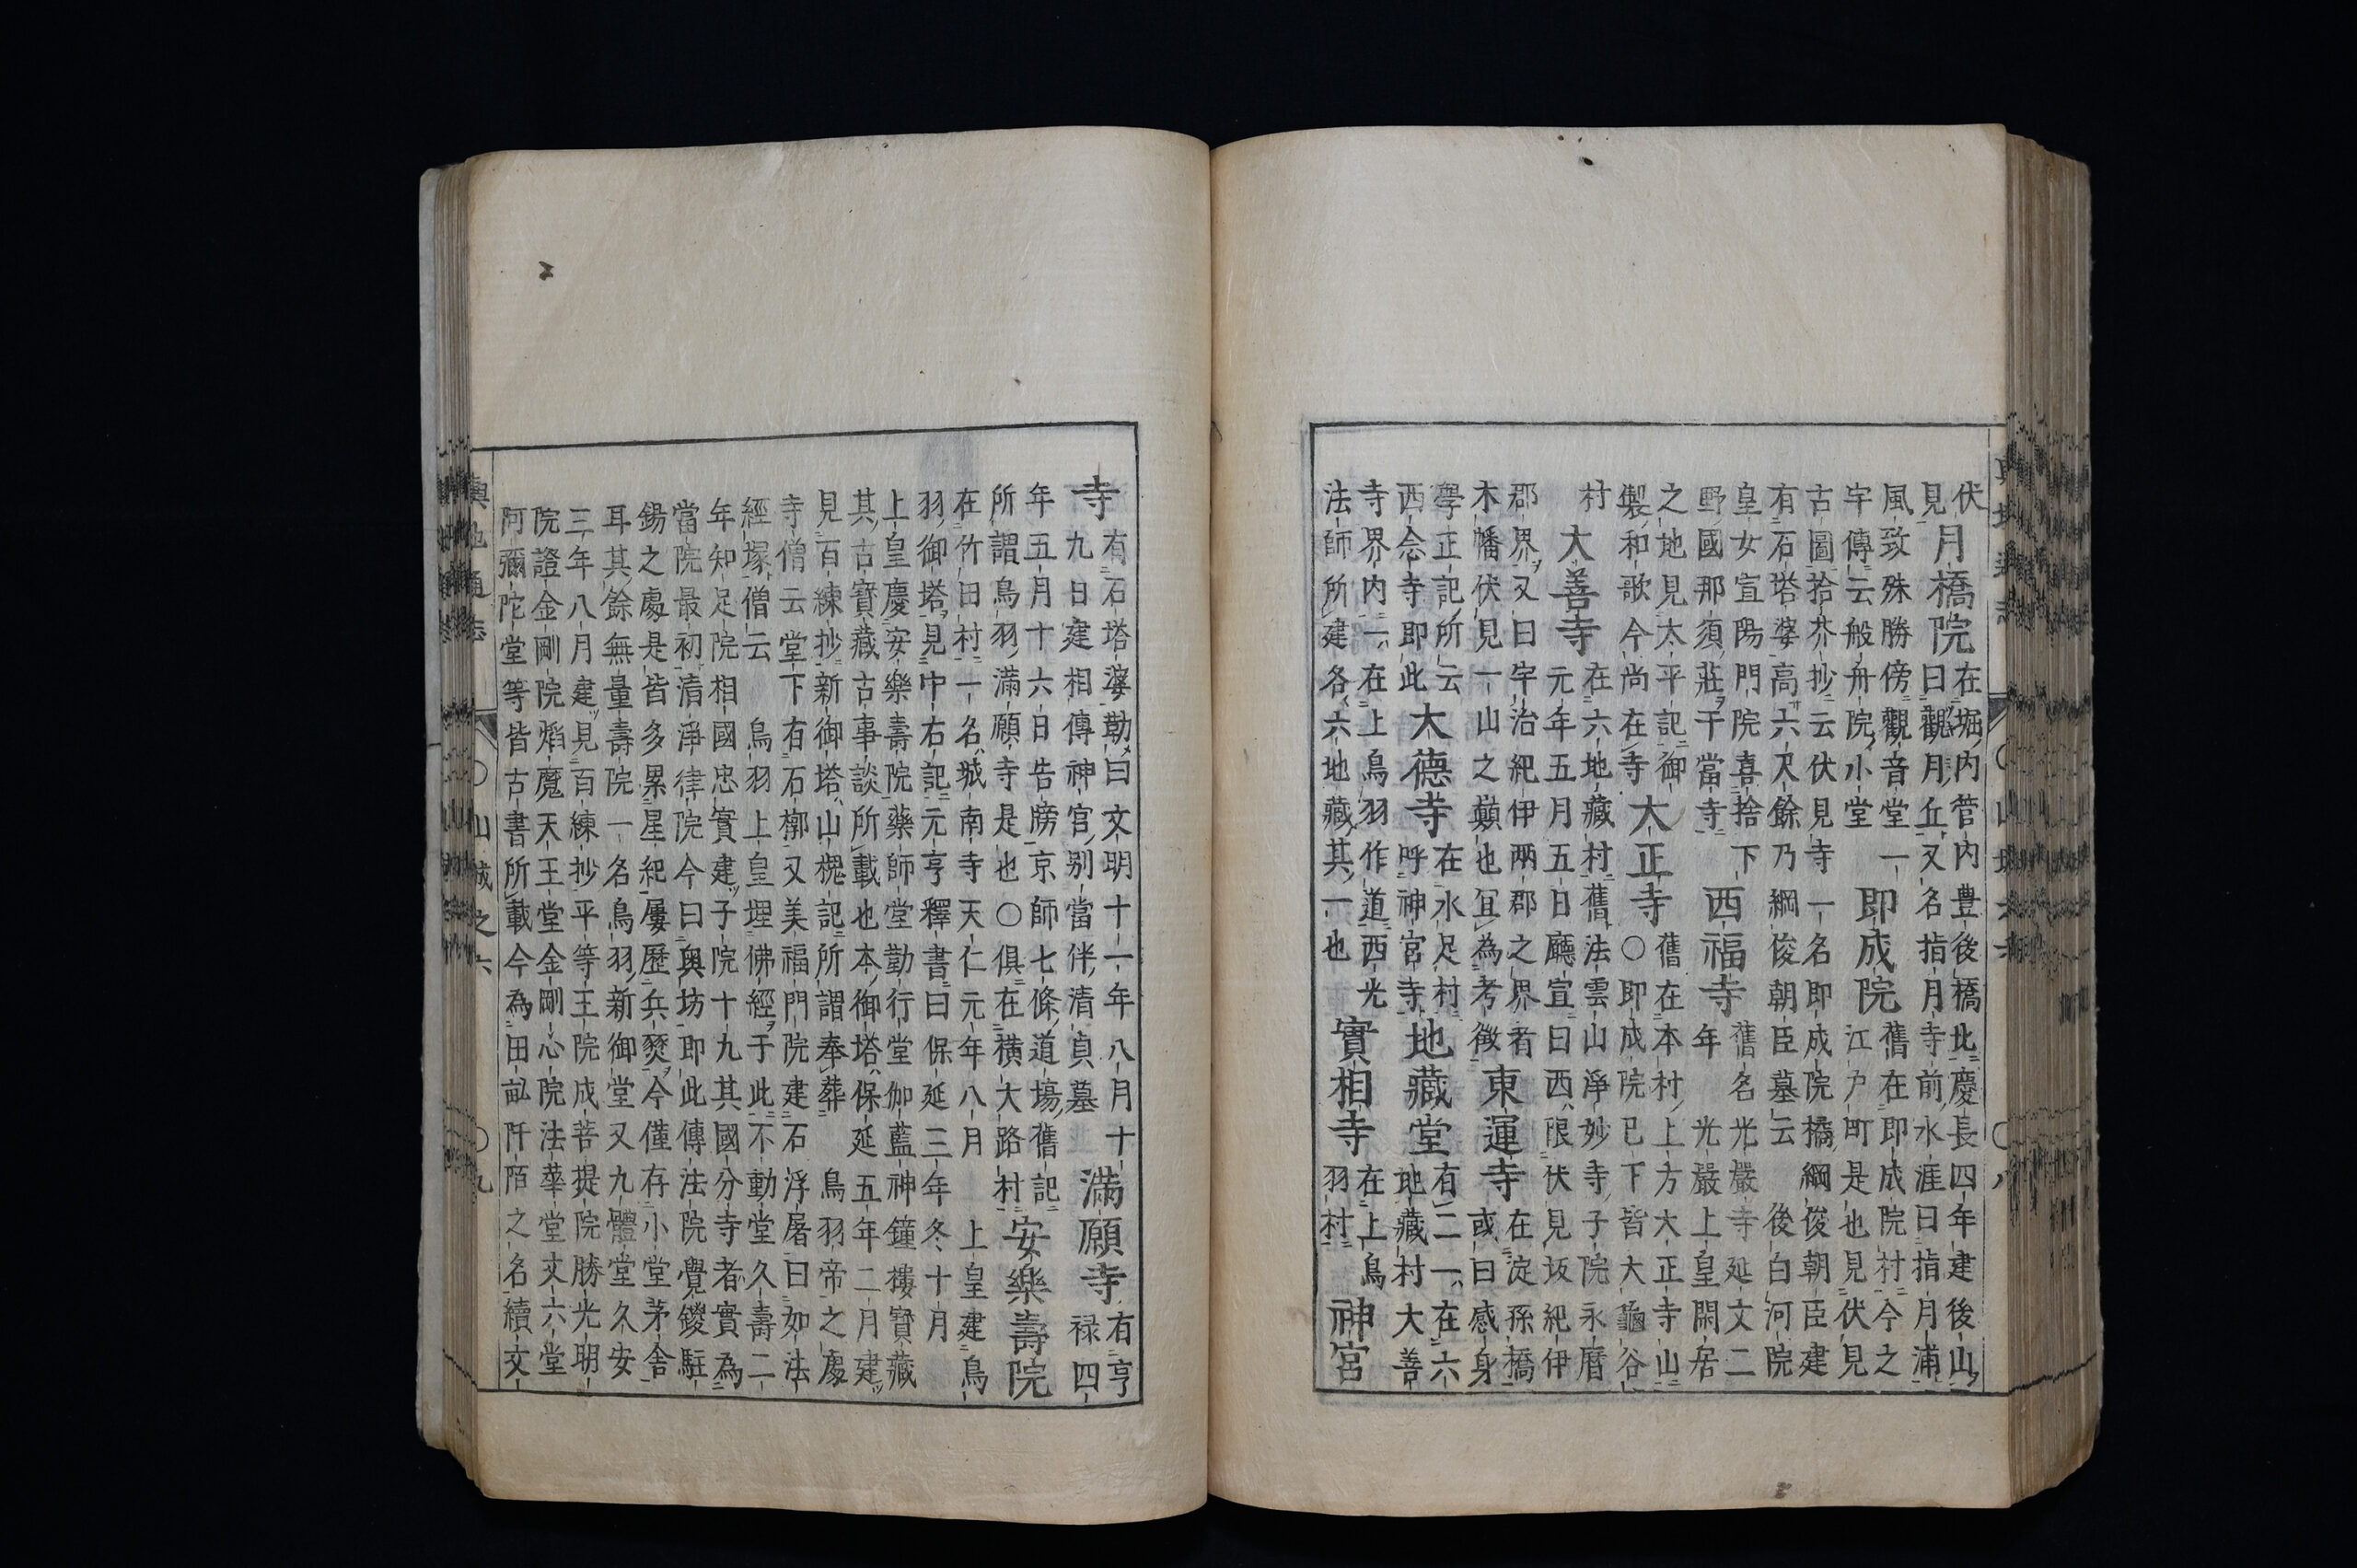 伏見 月橋院 在堀内菅内豊後橋北慶長四年建後山
曰觀月丘又名指月寺前水涯曰指月浦
風致殊勝傍觀音堂一
宇傳云般舟院小堂 即成院 舊在即成院村今之
江戸町是也見伏見
古圖拾芥抄云伏見寺一名即成院橘綱俊朝臣建
有石塔婆高六尺餘乃綱俊朝臣墓云 後白河院
皇女宣陽門院喜捨下
野國那須莊于當寺 西福寺 舊名光嚴寺延文二
年 光嚴上皇閑居
之地見太平記御
製和歌今尚在寺 大正寺 舊在本村上方大正寺山
○即成院已下皆大龜谷
村 大善寺 在六地藏村舊法雲山淨妙寺子院永曆
元年五月五日廳宣曰西限伏見坂紀伊
郡界又曰宇治紀伊兩郡之界者
木幡伏見一山之巓也冝為考徴 東運寺 在淀孫橋
或曰感身
學正記所云
西念寺即此 大德寺 在水足村
呼神宮寺 地藏堂 有二一在六
地藏村大善
寺界内一在上鳥羽作道西光
法師所建各六地藏其一也 實相寺 在上鳥
羽村 神宮
寺 有石塔婆勒曰文明十一年八月十
九日建相傳神官別當伴清貞墓 滿願寺 有亨
禄四
年五月十六日告牓京師七條道場舊記
所謂鳥羽滿願寺是也○俱在横大路村 安樂壽院
在竹田村一名城南寺天仁元年八月 上皇建鳥
羽御塔見中右記元亨釋書曰保延三年冬十月
上皇慶安樂壽院藥師堂勤行堂伽藍神鐘樓寳藏
其古寳藏古事談所載也本御塔保延五年二月建
見百練抄新御塔山槐記所謂奉葬 鳥羽帝之處
寺僧云堂下有石槨又美福門院建石浮屠曰如法
經塚僧云 鳥羽上皇埋佛經于此不動堂久壽二
年知足院相國忠實建子院十九其國分寺者實為
當院最初清淨律院今曰奥坊即此傳法院覺鑁駐
錫之處是皆多累星紀屢歷兵燹今僅存小堂茅舎
耳其餘無量壽院一名鳥羽新御堂又九體堂久安
三年八月建見百練抄平等王院成菩提院勝光明
院證金剛院焔魔天王堂金剛心院法華堂丈六堂
阿彌陀堂等皆古書所載今為田畝阡陌之名續文
輿地通志 ○山城之六 ○九